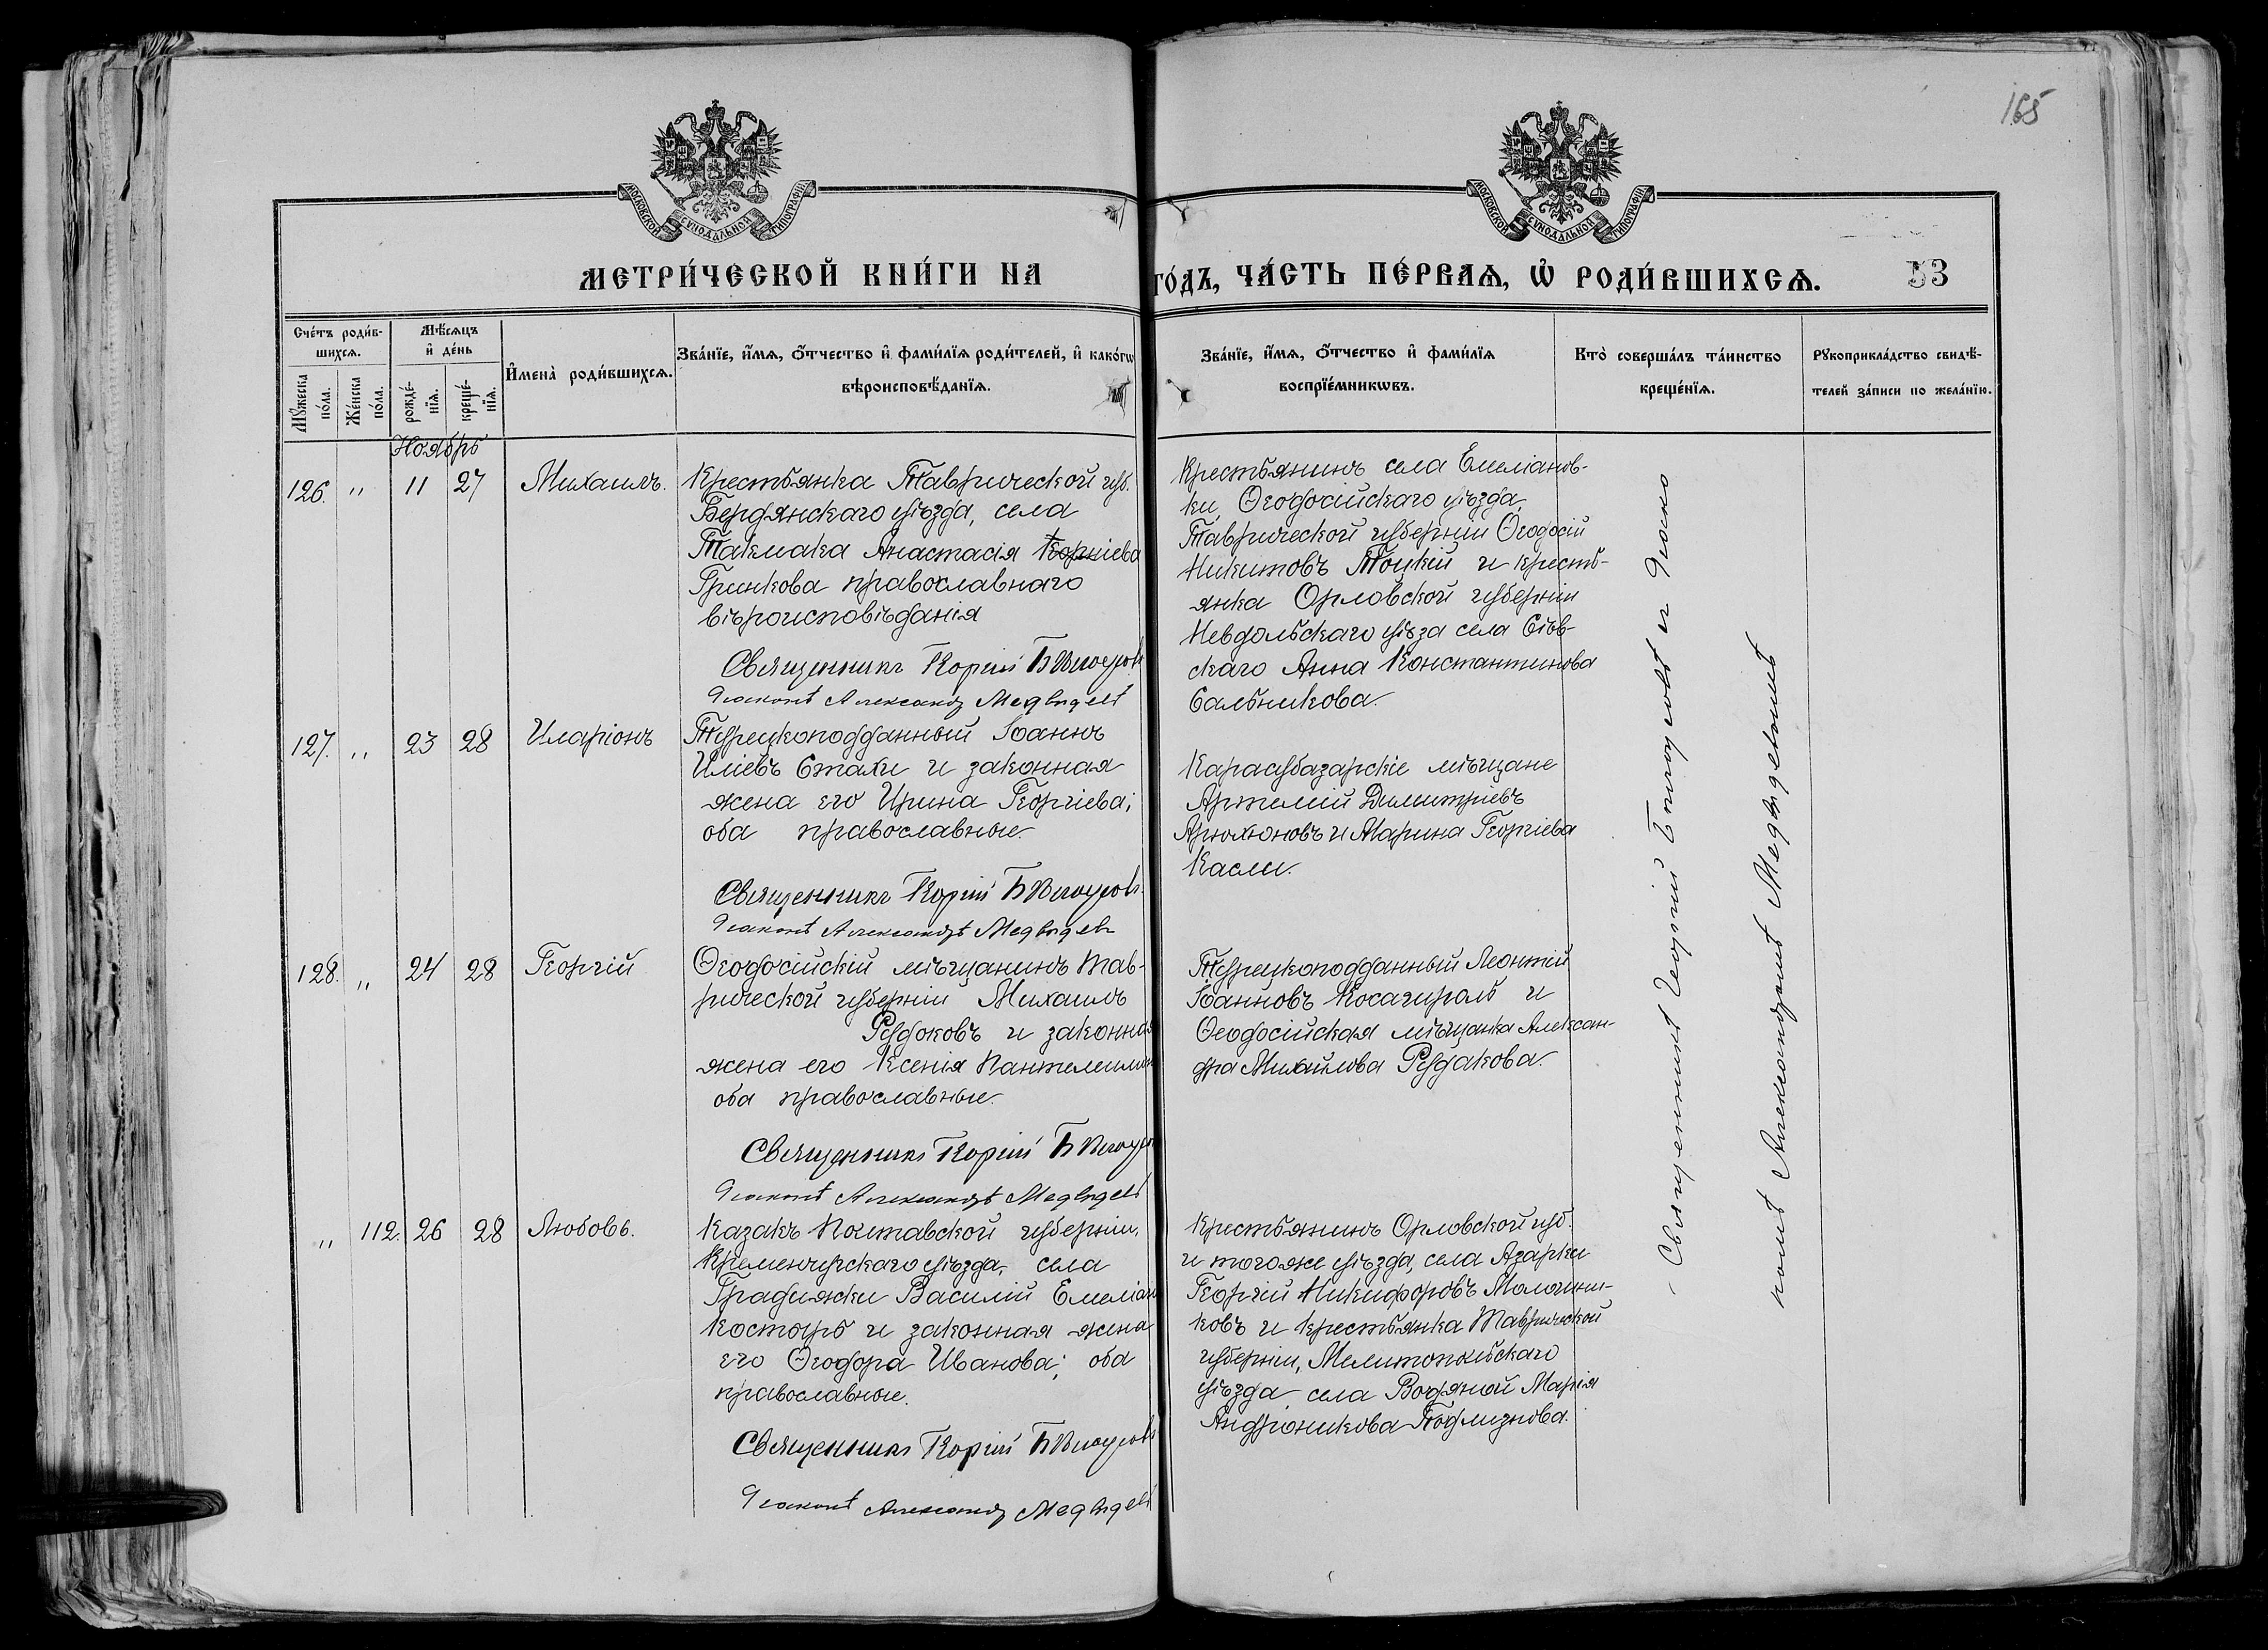 165
МОСКОВСКОЙ СѴНОДАЛЬНОЙ ТИПОГРАФІИ
МОСКОВСКОЙ СѴНОДАЛЬНОЙ ТИПОГРАФІИ
МЕТРИ́ЧЕСКОЙ КНИ́ГИ НА ГО́ДЪ, ЧА́СТЬ ПЕ́РВАѦ, Ѡ҆ РОДИ́ВШИХСѦ. 53
Сче́тъ роди́в-
шихсѧ.
Мѣ́сѧцъ
и҆ де́нь
Мꙋ́жеска по́ла.
Же́нска по́ла.
рожде́-
нїѧ.
креще́-
нїѧ.
И҆мена̀ роди́вшихсѧ.
Зва́нїе, и҆́мѧ, ѻ҆́тчество и҆ фами́лїѧ роди́телей, и҆ како́гѡ
вѣроисповѣ́данїѧ.
Зва́нїе, и҆́мѧ, ѻ҆́тчество и҆ фами́лїѧ
воспрїе́мникѡвъ.
Кто̀ соверша́лъ та́инство
креще́нїѧ.
Рꙋкоприкла́дство свидѣ́-
телей за́писи по жела́нїю.
Ноябрь
126. " 11 27 Михаилъ.
Крестьянка Таврической губ.
Бердянскаго уѣзда, села
Такмака Анастасія
Гринкова православнаго
вѣроисповѣданія
Священникъ
Діаконъ Александръ Медвѣдевъ
Крестьянинъ села Емеліанов-
ки, Ѳеодосійскаго уѣзда,
Таврической губерніи Ѳеодосій
Никитовъ Тоцкій и кресть-
янка Орловской губерніи
Невдольскаго уѣза села Сѣв-
скаго Анна Константинова
Сальникова.
127. " 23 28 Иларіонъ
Турецкоподданный Іоаннъ
Иліевъ Стахи и законная
жена его Ирина Георгіева;
оба православные.
Священникъ
Діаконъ Александръ Медвѣдевъ
Карасубазарскіе мѣщане
Артемій Димитріевъ
Арюхоновъ и Марина Георгіева
Касли.
128. " 24 28 Георгій
Ѳеодосійскій мѣщанинъ Тав-
рической губерніи Михаилъ
Рудоковъ и законная
жена его Ксенія Пантелеимон
оба православные.
Священникъ
Діаконъ Александръ Медвѣдевъ
Турецкоподданный Леонтій
Іоанновъ Косагироль и
Ѳеодосійская мѣщанка Алексан-
дра Михайлова Рудакова.
" 112. 26 28 Любовь.
Казакъ Полтавской губерніи,
Кременчугскаго уѣзда, села
Градижски Василій Емеліан
Костырь и законная жена
его Ѳеодора Иванова; оба
православные.
Священникъ
Діаконъ Александръ Медвѣдевъ
Крестьянинъ Орловской губ.
и тогоже уѣзда, села Азарки
Георгій Никифоровъ Молочни-
ковъ и крестьянка Таврической
губерніи, Мелитопольскаго
уѣзда села Водяной Марія
Андроникова Подлизнова.
Священникъ Георгій и діако
нъ Александръ Медвѣдевъ